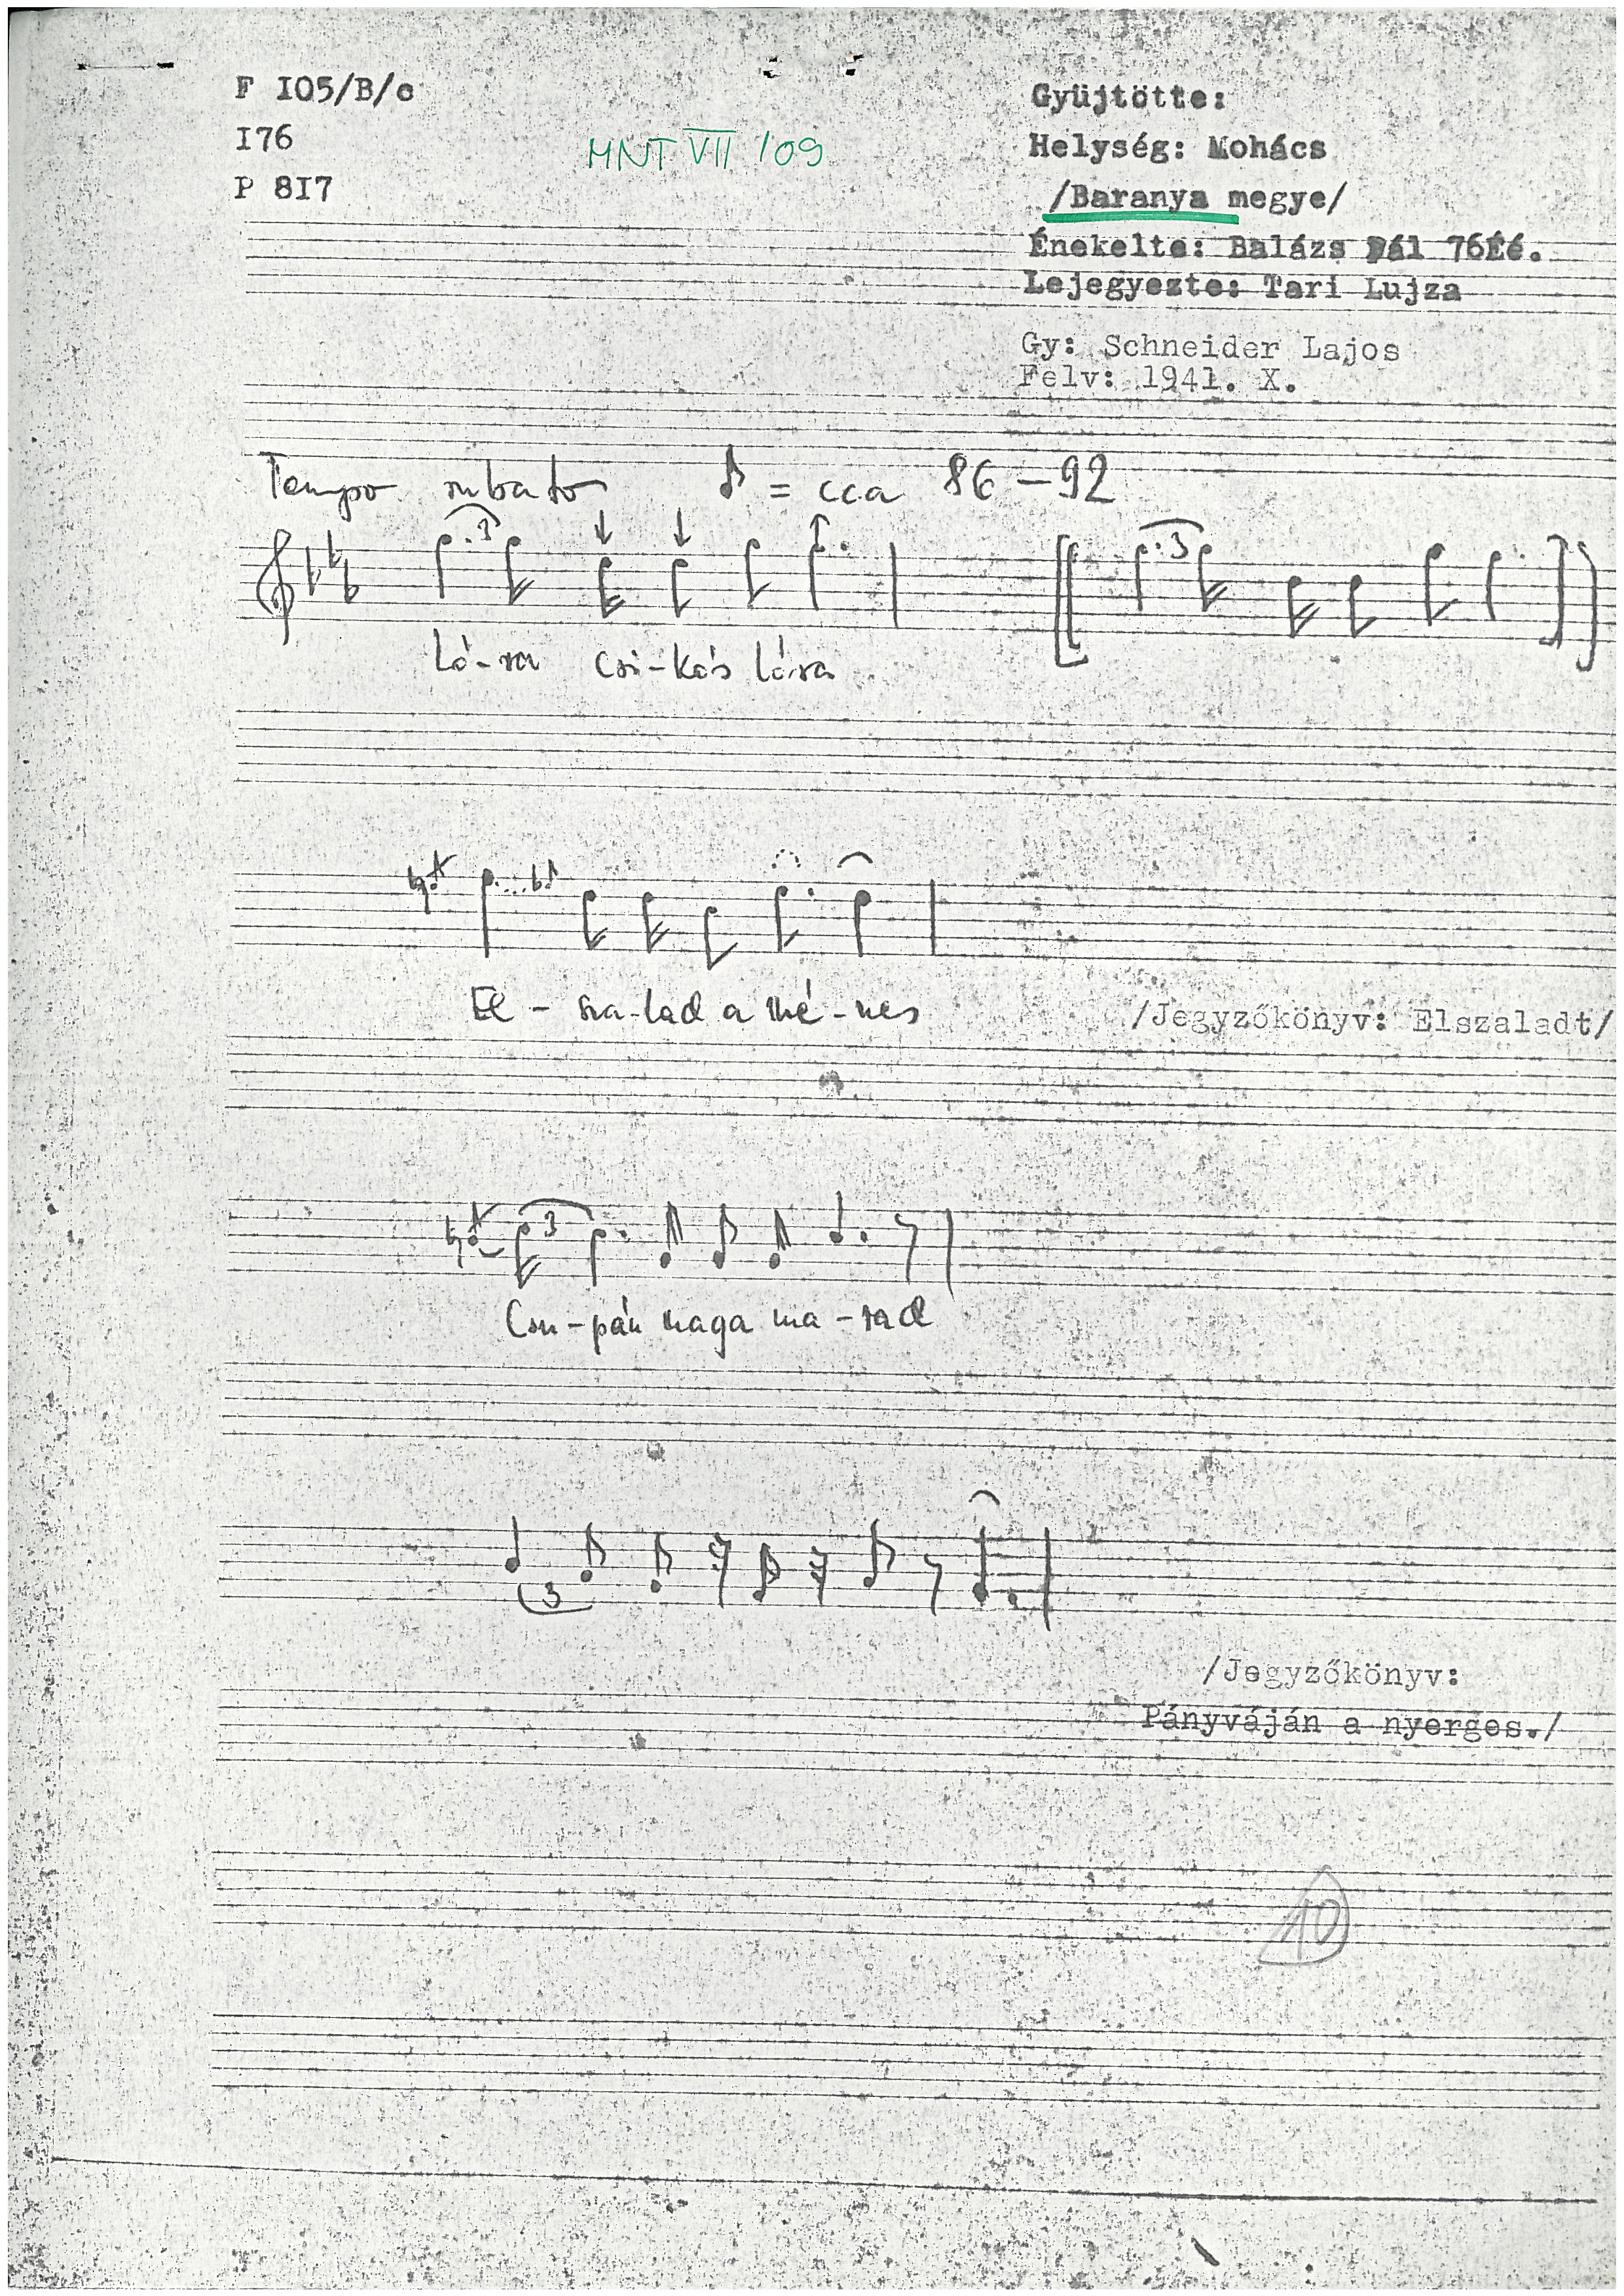 F I05/B/c
I76
P 8I7
MNT VII 109
Gyüjtötte:
Helység: Mohács
/Baranya megye/
Énekelte: Balázs Pál 76éé.
Lejegyezte: Tari Lujza
Gy: Schneider Lajos
Felv: 1941. X.
Tempo rubato ♪ = cca 86 – 92
3
3
Ló-ra csi-kós lóra
El - sza-lad a mé-nes
/Jegyzőkönyv: Elszaladt/
3
Csu-pán maga ma-rad
3
/Jegyzőkönyv:
Pányváján a nyerges./
10